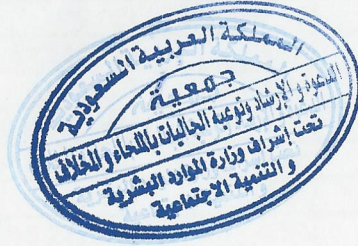 المملكة العربية السعودية
جمعية
الدعوة والإرشاد وتوعية الجاليات باللحاء والخلاف
تحت إشراف وزارة الموارد البشرية
و التنمية الإجتماعية